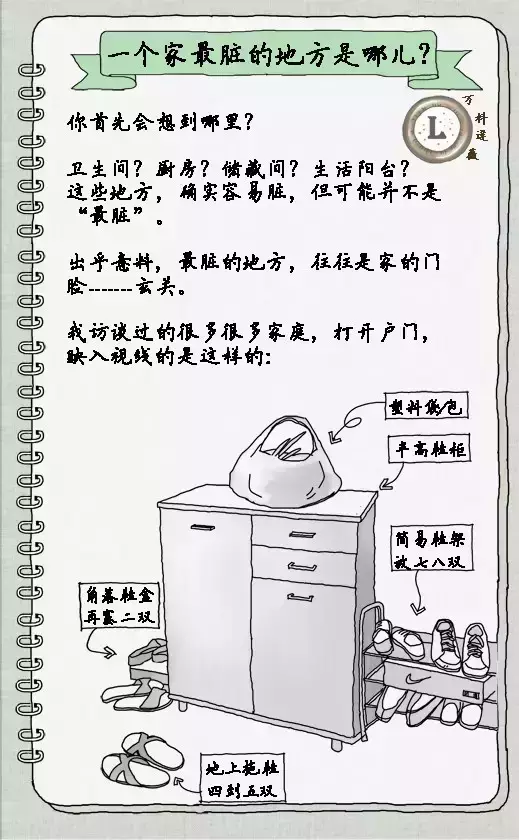 一个家最脏的地方是哪儿？
万科逯薇
L
你首先会想到哪里？
卫生间？厨房？储藏间？生活阳台？
这些地方，确实容易脏，但可能并不是
“最脏”。
出乎意料，最脏的地方，往往是家的门
脸-------玄关。
我访谈过的很多很多家庭，打开户门，
映入视线的是这样的：
塑料袋/包
半高鞋柜
简易鞋架
放七八双
角落鞋盒
再塞二双
地上拖鞋
四到五双